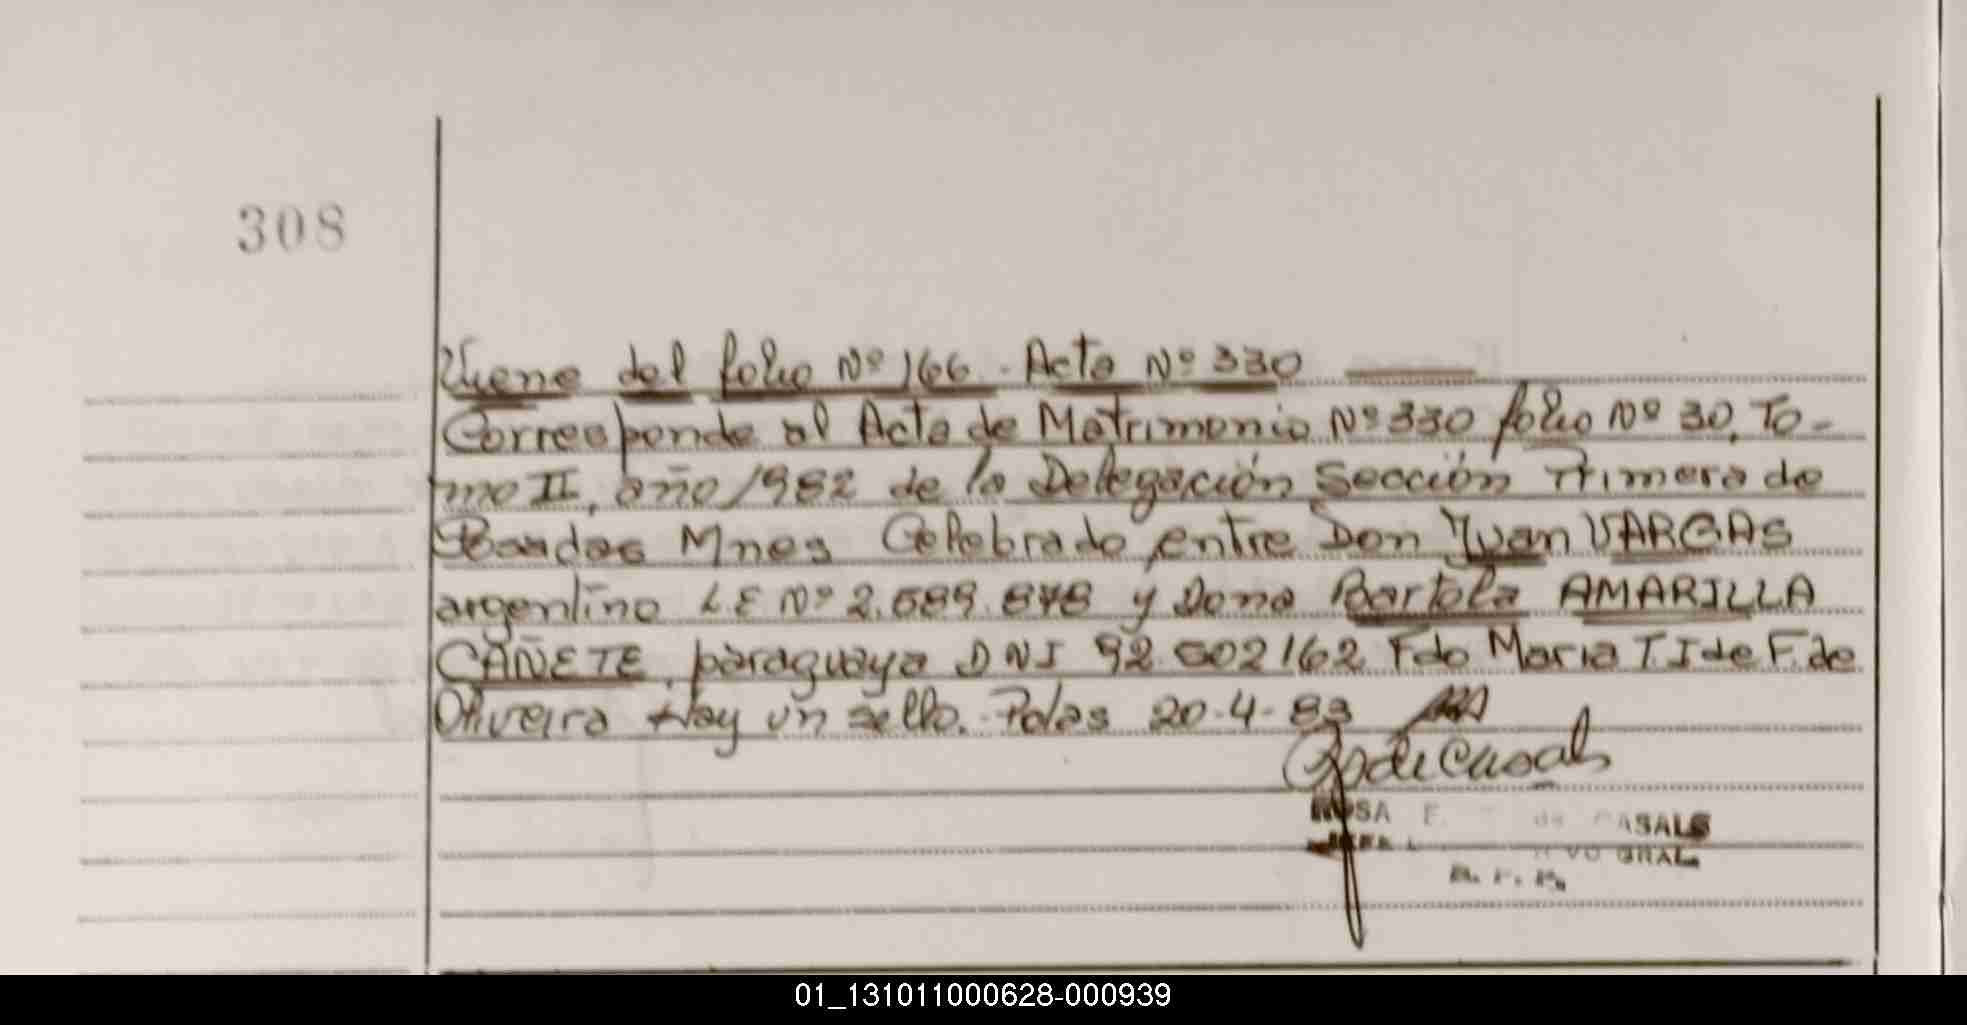 308
Viene del folio Nº 166 - Acta Nº 330
Corresponde al Acta de Matrimonio Nº 330 folio Nº 30, To-
mo II, año 1982 de la Delegación Sección Primera de
Posadas Mnes Celebrado entre Don Juan VARGAS
argentino L.E Nº 2.589.878 y Dona Bartola AMARILLA
CAÑETE, paraguaya DNI 92.602162 Fdo Maria T. I de F. de
Oliveira Hay un sello. Pdas 20-4-83
R de Casals
ROSA E. de CASALS
GRAL.
01_131011000628-000939